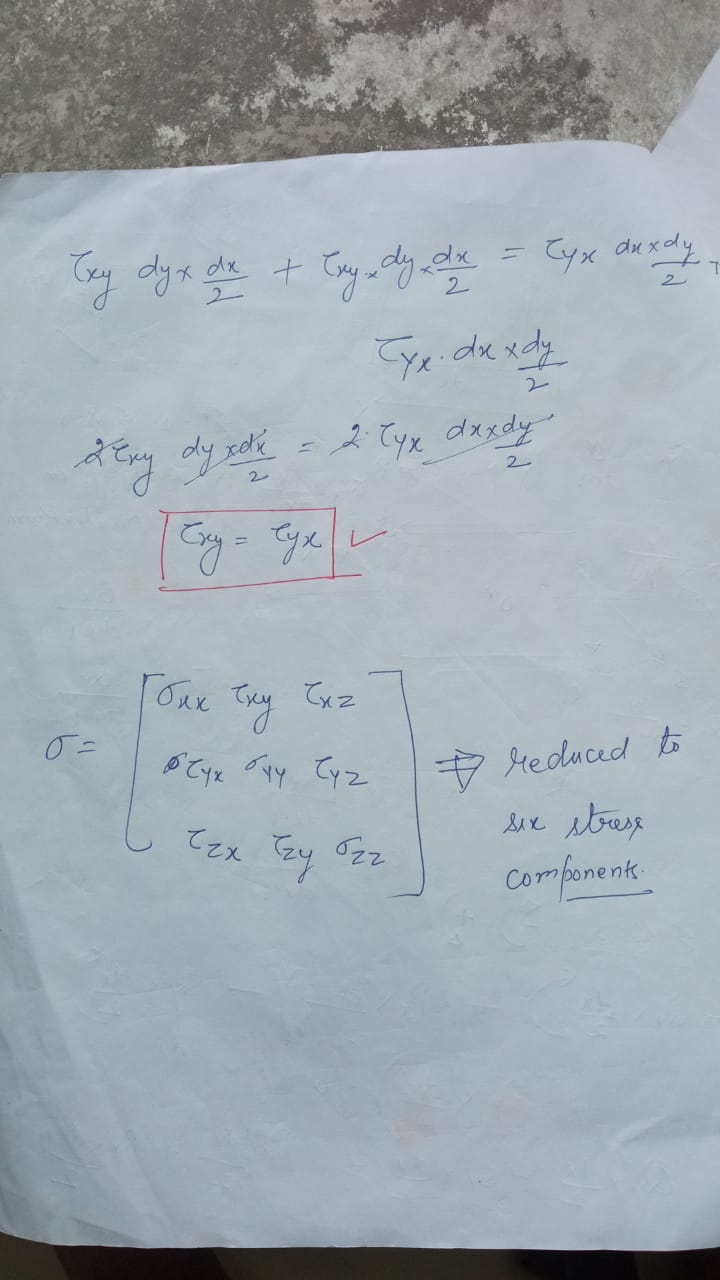 τxy dy × dx/2 + τxy × dy × dx/2 = τyx dx × dy/2 +
τyx · dx × dy/2
2 τxy dy × dx/2 = 2 · τyx dx × dy/2
τxy = τyx ✓
σ = [σxx τxy τxz
τyx σyy τyz
τzx τzy σzz] ⇒ reduced to
six stress
components.